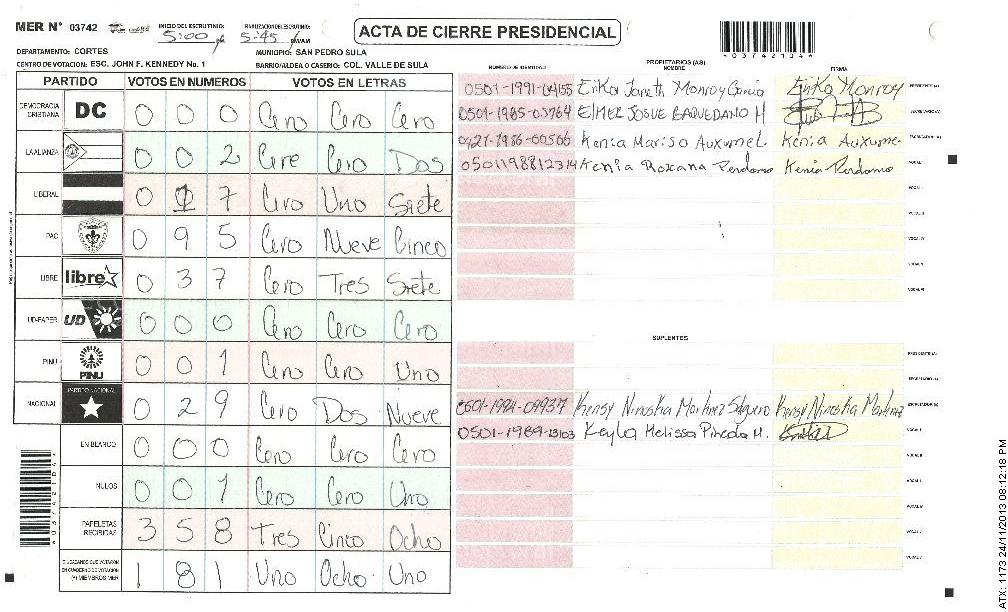 MER N° 03742 INICIO DEL ESCRUTINIO: 5:00 FINALIZACION DEL ESCRUTINIO: 5:45 PM/AM
ACTA DE CIERRE PRESIDENCIAL
03742104
DEPARTAMENTO: CORTES MUNICIPIO: SAN PEDRO SULA
CENTRO DE VOTACION: ESC. JOHN F. KENNEDY No. 1 BARRIO/ALDEA O CASERIO: COL. VALLE DE SULA
PARTIDO VOTOS EN NUMEROS VOTOS EN LETRAS
DEMOCRACIA CRISTIANA DC 0 0 0 Cero Cero Cero
LA ALIANZA 0 0 2 Cero Cero Dos
LIBERAL 0 1 7 Cero Uno Siete
PAC 0 9 5 Cero Nueve Cinco
LIBRE libre 0 3 7 Cero Tres Siete
UD-FAPER UD 0 0 0 Cero Cero Cero
PINU PINU 0 0 1 Cero Cero Uno
NACIONAL PARTIDO NACIONAL 0 2 9 Cero Dos Nueve
EN BLANCO 0 0 0 Cero Cero Cero
NULOS 0 0 1 Cero Cero Uno
PAPELETAS RECIBIDAS 3 5 8 Tres Cinco Ocho
CIUDADANOS QUE VOTARON EN CUADERNO DE VOTACION (+) MIEMBROS MER 1 8 1 Uno Ocho Uno
PROPIETARIOS (AS)
NUMERO DE IDENTIDAD NOMBRE FIRMA
0501-1991-04155 Erika Janeth Monroy Garcia Erika Monroy PRESIDENTE (A)
0501-1985-03764 ELMER JOSUE BAQUEDANO H SECRETARIO (A)
0421-1986-00566 Kenia Marisa Auxumel Kenia Auxumel ESCRUTADOR (A)
0501198812314 Kenia Roxana Perdomo Kenia Perdomo VOCAL I
VOCAL II
VOCAL III
VOCAL IV
VOCAL V
VOCAL VI
SUPLENTES
PRESIDENTE (A)
SECRETARIO (A)
0601-1994-09937 Kensy Ninoska Martinez Kensy Ninoska Martinez ESCRUTADOR (A)
0501-1989-13103 Keyla Melissa Pineda M. VOCAL I
VOCAL II
VOCAL III
VOCAL IV
VOCAL V
ATX: 1173 24/11/2013 08:12:18 PM